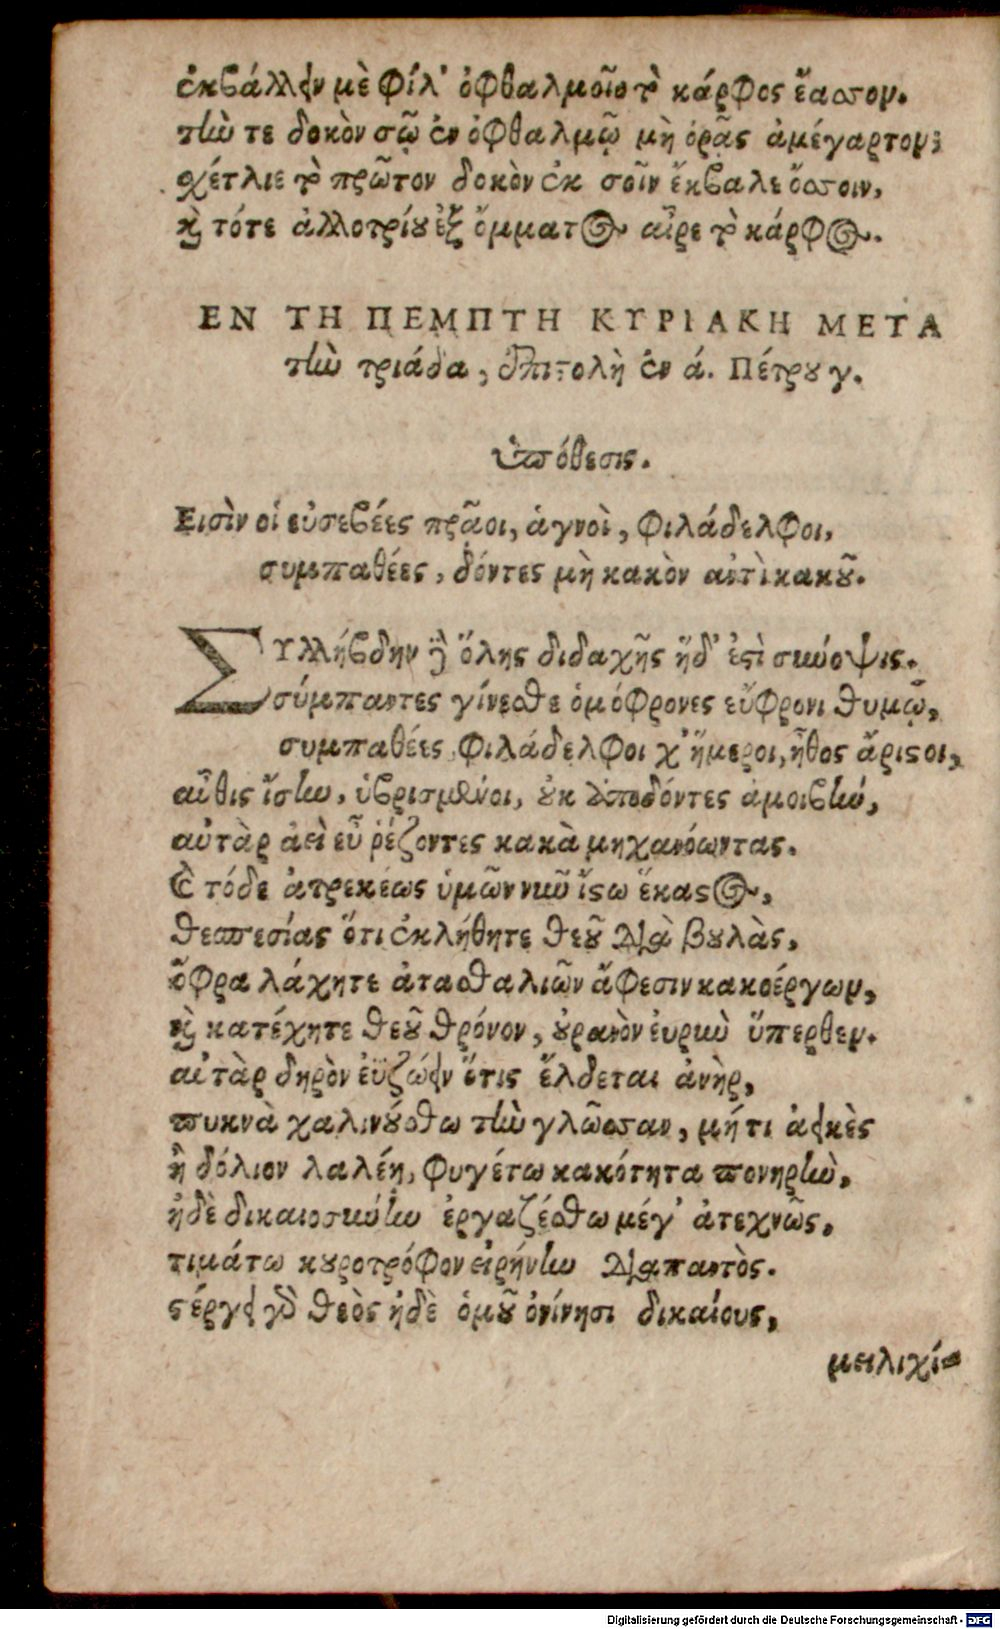 ἐκβάλλειν μὲ φίλ' ὀφθαλμοῖο τὸ κάρφος ἔασσον.
τὴν τε δοκὸν σῷ ἐν ὀφθαλμῷ μὴ ὁρᾷς ἀμέγαρτον;
σχέτλιε τὸ πρῶτον δοκὸν ἐκ σοῖν ἔκβαλε ὄσσοιν,
καὶ τότε ἀλλοτρίου ἐξ ὄμματος αἶρε τὸ κάρφος.
ΕΝ ΤΗ ΠΕΜΠΤΗ ΚΥΡΙΑΚΗ ΜΕΤΑ
τὴν τριάδα, ἐπιστολὴ ἐν ά. Πέτρου γ.
ὑπόθεσις.
Εισὶν οἱ εὐσεβέες πρᾶοι, ἁγνοὶ, φιλάδελφοι,
συμπαθέες, δόντες μὴ κακὸν ἀντὶ κακοῦ.
Συλλήβδην ὅλης διδαχῆς ἥδ' ἐστὶ σύνοψις.
σύμπαντες γίνεσθε ὁμόφρονες εὔφρονι θυμῷ,
συμπαθέες φιλάδελφοι χ' ἥμεροι, ἦθος ἄριστοι,
αὖθις ἴσην, ὑβρισμένοι, οὐκ ἀποδόντες ἀμοιβὴν,
αὐτὰρ ἀεὶ εὖ ῥέζοντες κακὰ μηχανόωντας.
Ἐ τόδε ἀτρεκέως ὑμῶν νιῦ ἴστω ἕκαστος,
θεσπεσίας ὅτι ἐκλήθητε θεοῦ διὰ βουλὰς,
ὄφρα λάχητε ἀτασθαλιῶν ἄφεσιν κακοέργων,
καὶ κατέχητε θεοῦ θρόνον, οὐρανὸν ἐυρκὺ ὕπερθεν.
αὐτὰρ δηρὸν ἐϋζώειν ὅτις ἔλδεται ἀνὴρ,
πυκνὰ χαλινούσθω τὴν γλῶσσαν, μήτι ἀεικὲς
ἢ δόλιον λαλέῃ, φυγέτω κακότητα πονηρὴν,
ἠδὲ δικαιοσύνην ἐργαζέσθω μέγ' ἀτεχνῶς,
τιμάτω κουροτρόφον εἰρήνην διαπαντὸς.
στέργει γὰρ θεὸς ἠδὲ ὁμοῦ ὀνίνησι δικαίους,
μειλιχί-
Digitalisierung gefördert durch die Deutsche Forschungsgemeinschaft - DFG